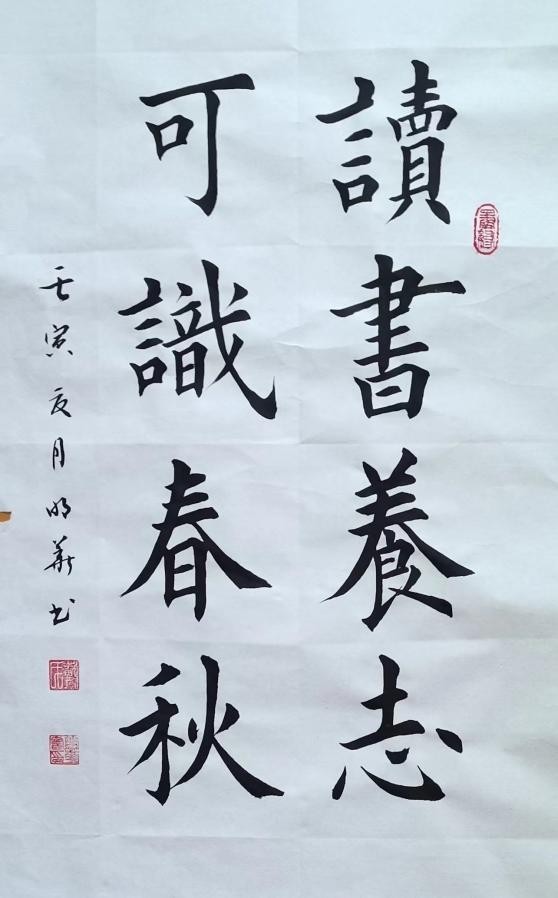 讀書養志
可識春秋
壬寅夏月明華书